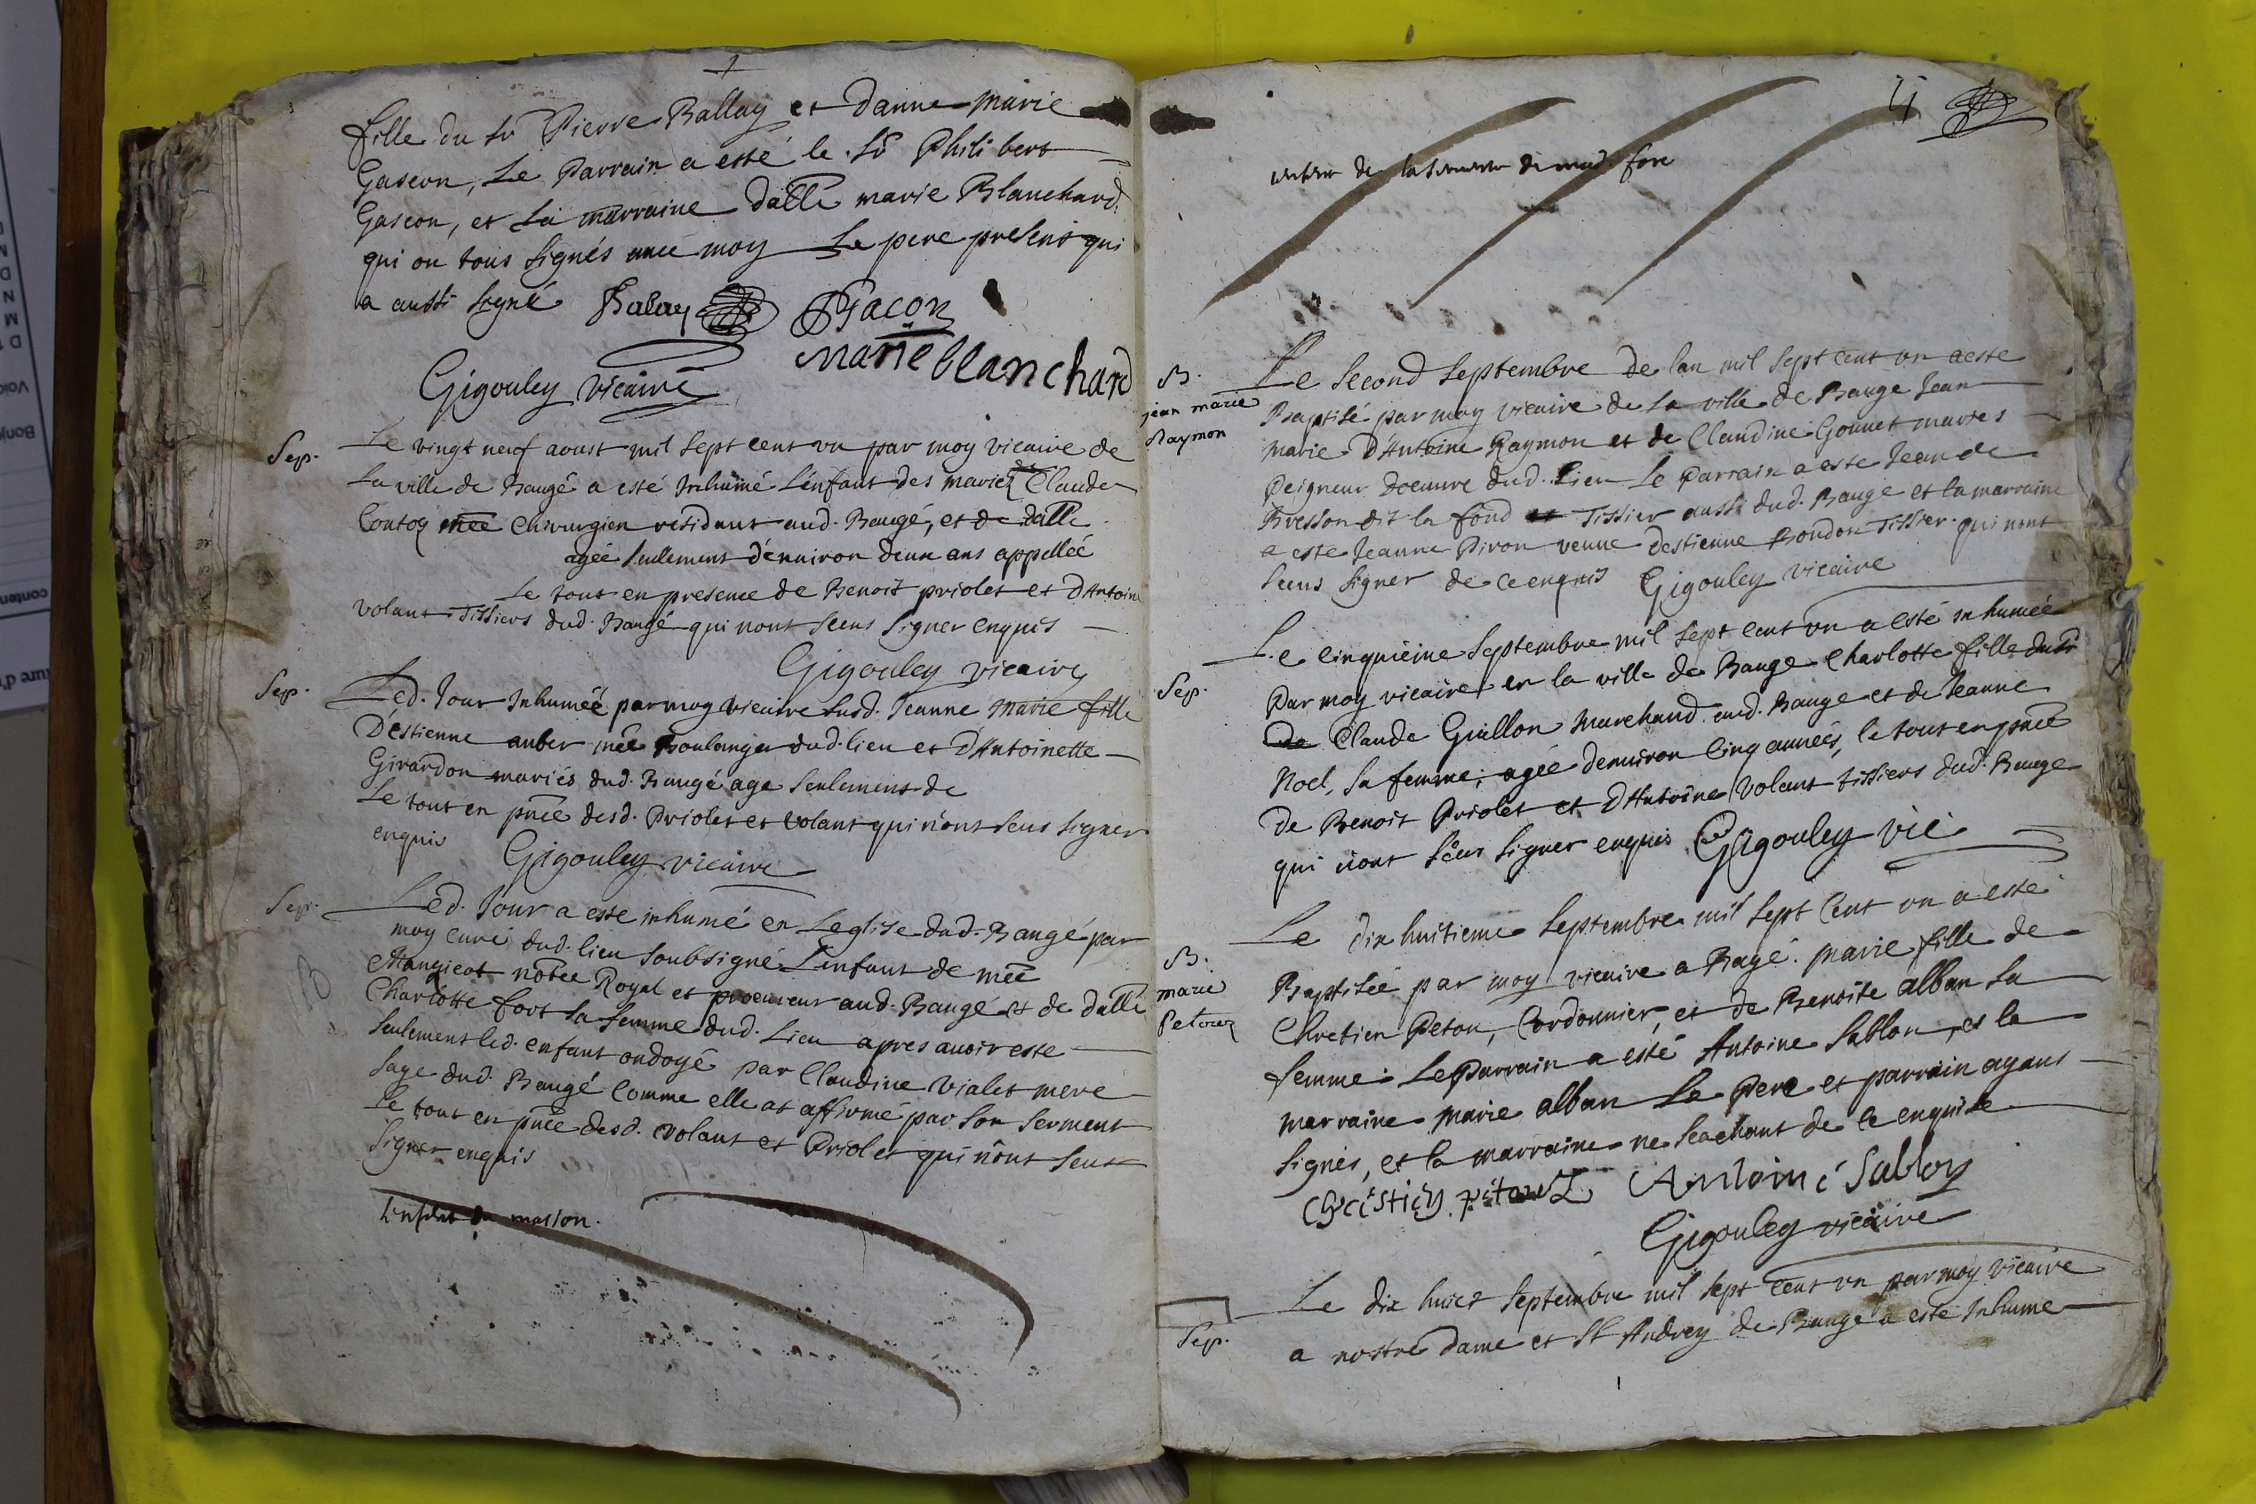 fille du sr Pierre Ballay et danne marie
Gascon, Le Parrain a esté le sr Philibert
Gascon, et La marraine dalle marie Blanchard
qui on tous signés avec moy Le pere present qui
a aussi signé Balay Gacon
marie blanchard
Gigouley vicaire
Sep.
Le vingt neuf aoust mil sept cent vn par moy vicaire de
La ville de Baugé a esté Inhumé L'enfant des mariez Claude
Contoy mee Chirurgien residant aud. Baugé, et de dalle
agée seulement d'environ deux ans appellée
Le tout en presence de Benoit priolet et d'Antoine
volant Tissiers dud. Baugé qui nont sceus signer enquis
Gigouley vicaire
Sep.
Led. Jour Inhumée par moy vicaire susd. Jeanne marie fille
D'estienne auber mee Boulanger dud. lieu et D'Antoinette
Girardon mariés dud. Baugé age seulement de
Le tout en pnce desd. Priolet et volant qui n'ont sceus signer
enquis Gigouley vicaire
Sep.
Led. Jour a esse inhumé en L'eglise dud. Baugé par
moy curé dud. lieu soubsigné L'enfant de mee
Mangicot notee Royal et procureur aud. Baugé et de dalle
Charlotte fort sa femme dud. Lieu apres avoir este
seulement led. enfant ondoyé par Claudine vialet mere
sage dud. Baugé Comme elle at affirmé par son serment
Le tout en pnce desd. volant et Priolet qui n'ont sceus
signer enquis
L'enfant masson.
de la de mad. fore
B.
jean marie
Raymon
Le second septembre de lan mil sept cent vn a esté
Baptisé par moy vicaire de La ville de Bauge Jean
marie D'Antoine Raymon et de Claudine Gonnet mariés
Peigneur d'oeuvre dud. Lieu Le Parrain a este Jean de
Bresson dit la fond Tissier aussi dud. Baugé et la marraine
a esté Jeanne Piron veuve destienne Bondon Tissier qui nont
sceus signer de ce enquis Gigouley vicaire
Sep.
Le cinquieme septembre mil sept cent vn a esté inhumée
Par moy vicaire en la ville de Bauge Charlotte fille du sr
de Claude Guillon marchand aud. Bauge et de Jeanne
Noel, sa femme; agée denviron Cinq années, le tout en pnce
de Benoit Priolet et d'Antoine volant tissiers dud. Bauge
qui nont sceus signer enquis Gigouley vic
B.
marie
Petoux
Le dix huitieme septembre mil sept Cent vn a esté
Baptisée par moy vicaire a Bagé. marie fille de
Chretien Petou, Cordonnier, et de Benoite alban sa
femme: Le Parrain a esté Antoine sablon, et la
marraine marie alban Le Pere et parrain ayans
signés, et la marraine ne scachant de ce enquise
christien Antoine Sablon
Gigouley vicaire
Sep.
Le dix huict septembre mil sept cent vn par moy vicaire
a nostre dame et St Andrey de Baugé a esté Inhume